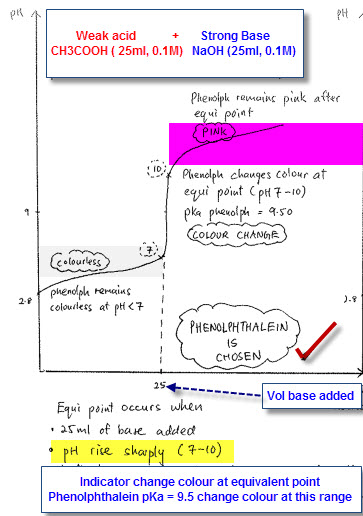 pH
pH
Weak acid + Strong Base
CH3COOH ( 25ml, 0.1M) NaOH (25ml, 0.1M)
Phenolph remains pink after
equi point
PINK
10
Phenolph changes colour at
equi point (pH 7-10)
pKa phenolph = 9.50
COLOUR CHANGE
9
7
colourless
2.8
phenolph remains
colourless at pH<7
2.8
PHENOLPHTHALEIN
IS
CHOSEN
25
Vol base added
Equi point occurs when
• 25ml of base added
• pH rise sharply (7-10)
Indicator change colour at equivalent point
Phenolphthalein pKa = 9.5 change colour at this range